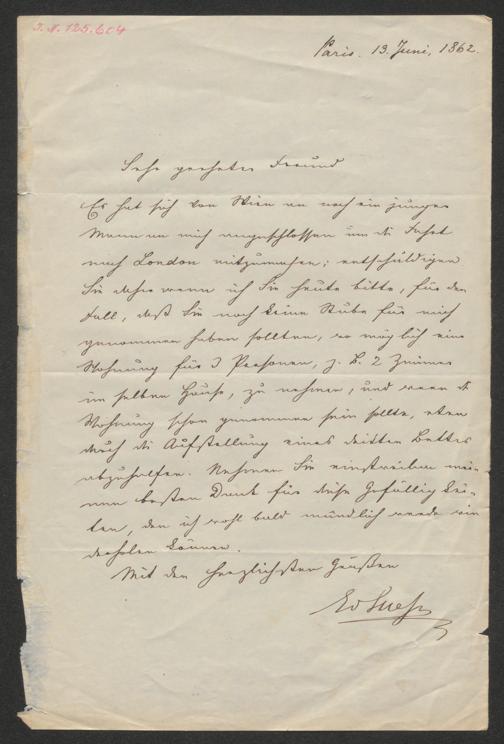 I.N. 125.604
Paris. 13. Juni, 1862.
Sehr geehrter Freund
Es hat sich von Wien an noch ein junger
Mann an mich angeschlossen um die Fahrt
nach London mitzumachen; entschuldigen
Sie daher wenn ich Sie heute bitte, für den
Fall, daß Sie noch keine Stube für mich
genommen haben sollten, wo möglich eine
Wohnung für 3 Personen, z. B. 2 Zimmer
im selben Hause, zu nehmen, und wenn die
Wohnung schon genommen sein sollte, etwa
durch die Aufstellung eines dritten Bettes
abzuhelfen. Nehmen Sie einstweilen mei-
nen besten Dank für diese Gefälligkei-
ten, den ich wohl bald mündlich werde wie
derholen können.
Mit den herzlichsten Grüßen
Ed Suess